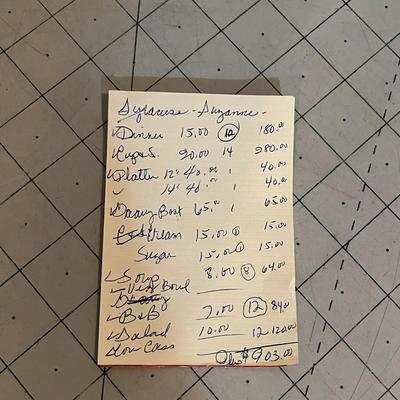 Syracuse - Suzanne -
✓Dinner 15.00 (12) 180.00
✓Cup&S. 20.00 14 280.00
✓Platter 12" 40.00 1 40.00
✓ 14" 40.00 1 40.00
✓Gravy Boat 65.00 1 65.00
Cream 15.00 ① 15.00
Sugar 15.00 ① 15.00
✓Soup 8.00 (8) 64.00
Veg Bowl
✓B&B 7.00 (12) 84.00
✓Salad 10.00 12 120.00
Low Cass
$903.00